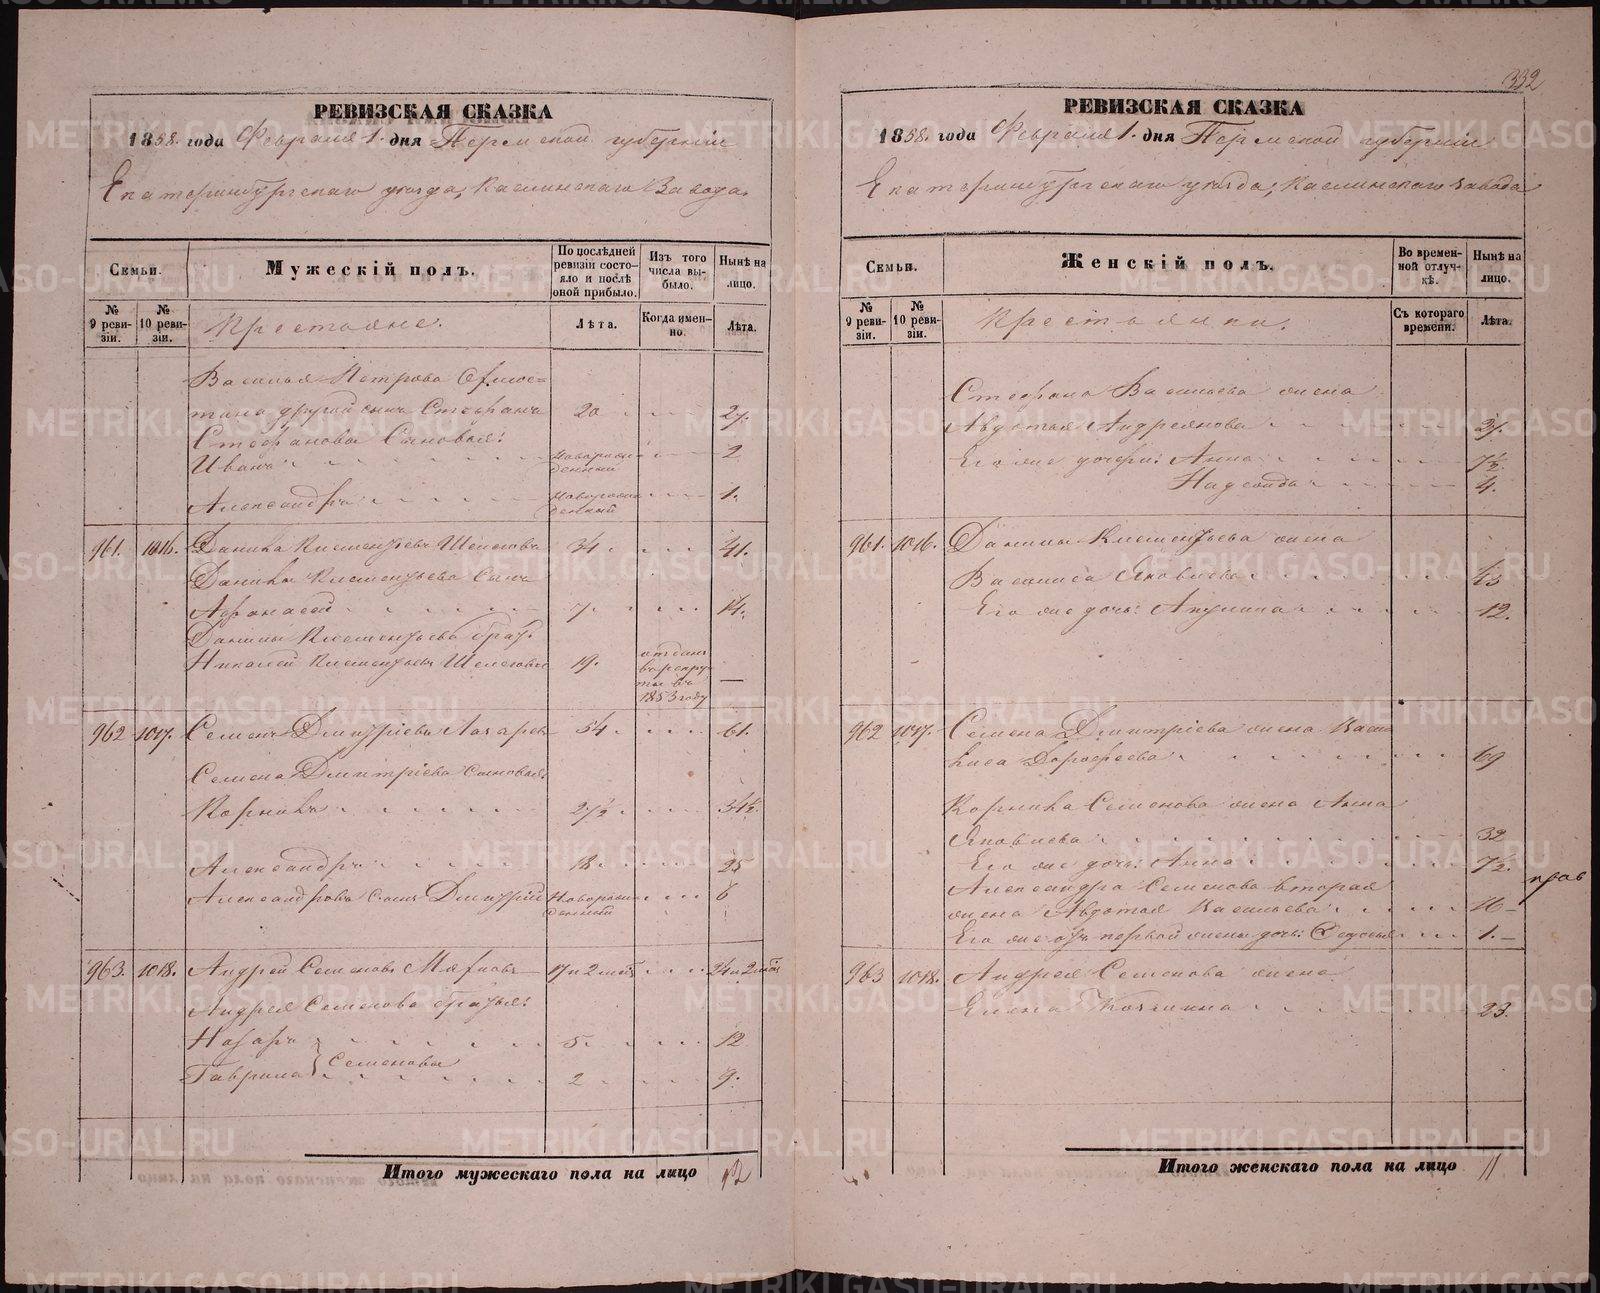 РЕВИЗСКАЯ СКАЗКА
1858. года Февраля 1. дня Пермской губернiи
Екатеринбургскаго уѣзда, Каслинскаго Завода.
Семьи.
Мужескiй полъ.
По послѣдней ревизiи состояло и послѣ оной прибыло.
Изъ того числа выбыло.
Нынѣ на лицо.
№ 9 ревизiи.
№ 10 ревизiи.
Крестьяне.
Лѣта.
Когда именно.
Лѣта.
Василья Петрова
другой сынъ Стефанъ 20 27.
Стефановы Сыновья:
Иванъ новорожденный 2
Александръ новорожденный 1.
961. 1016. Данила Клементьевъ 34 41.
Данилы Клементьева Сынъ
Афонасей 7. 14.
Данилы Клементьева братъ
Николай Клементьевъ 19. отданъ въ рекруты въ 1853 году —
962 1017. Семенъ Дмитрiевъ 54 61.
Семена Дмитрiева Сыновья:
Корнилъ 27½ 34½.
Александръ 18. 25
Александровъ Сынъ Дмитрiй Новорожденный 6
963. 1018. Андрей Семеновъ 17 и 2 мѣс 24 и 2 мѣс
Андрея Семенова братья:
Назаръ 5. 12
Гаврила } Семеновы 2 9.
Итого мужескаго пола на лицо 12
332
РЕВИЗСКАЯ СКАЗКА
1858. года Февраля 1. дня Пермской губернiи
Екатеринбургскаго уѣзда, Каслинскаго завода
Семьи.
Женскiй полъ.
Во временной отлучкѣ.
Нынѣ на лицо.
№ 9 ревизiи.
№ 10 ревизiи.
Крестьянки.
Съ котораго времени.
Лѣта.
Стефана Васильева жена
Авдотья Андреянова 27.
Его же дочери: Анна 7½.
Надежда 4.
961. 1016. Данилы Клементьева жена
Василиса Яковлева 43
Его же дочь: Акулина 12.
962 1017. Семена Дмитрiева жена Васи
лиса Дорофеева 69
Корнила Семенова жена Анна
Яковлева 32
Его же дочь: Анна 7½.
Александра Семенова вторая
жена Авдотья Васильева 26
Его же отъ первой жены дочь: Федосья 1.
963 1018. Андрея Семенова жена
Елена 23.
Итого женскаго пола на лицо 11
METRIKI.GASO-URAL.RU